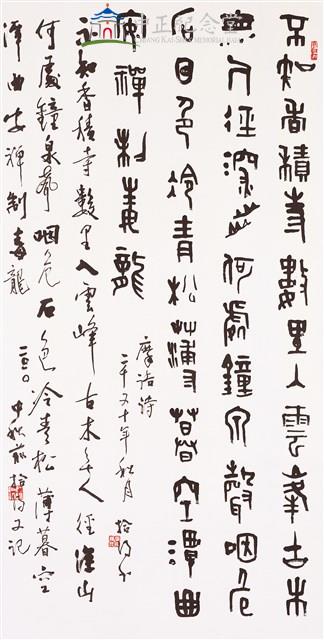 中正紀念堂
CHIANG KAI-SHEK MEMORIAL HALL
不知香積寺數里入雲峯古木
無人徑深山何處鐘泉聲咽危
石日色冷青松薄暮空潭曲
安禪制毒龍
摩詰詩
二千又十年秋月 拾得
不知香積寺數里入雲峰古木無人徑深山
何處鐘泉聲咽危石日色冷青松薄暮空
潭曲安禪制毒龍 中秋前拾得又記